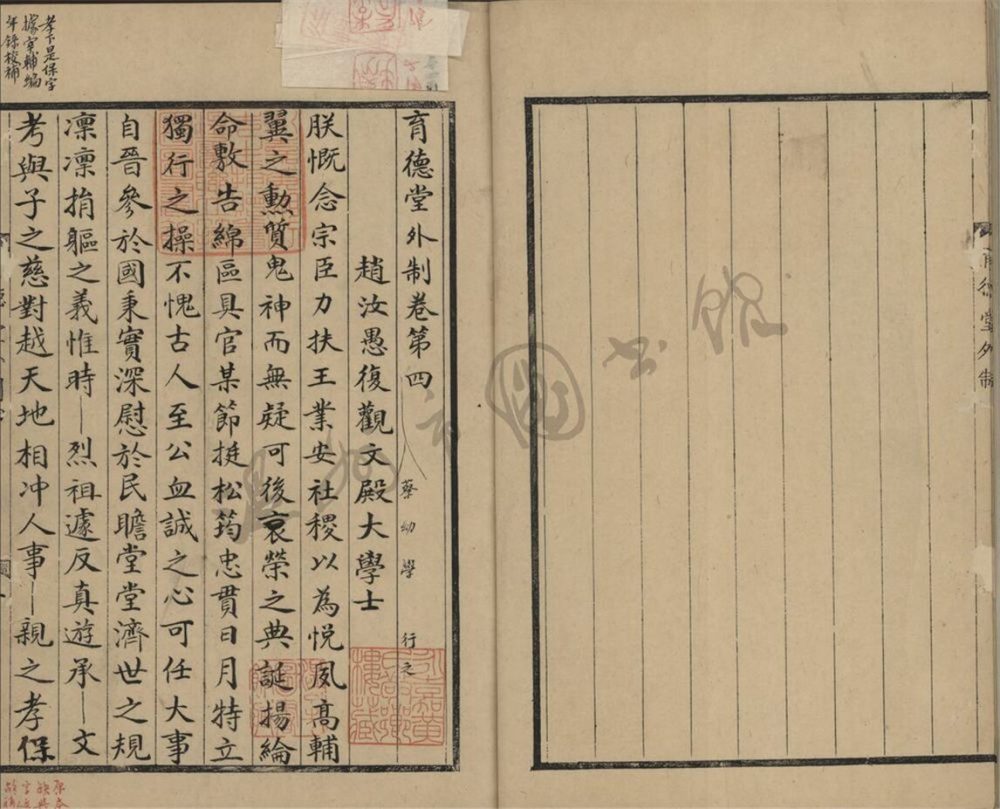 育德堂外制
育德堂外制卷第四
蔡幼學 行之
趙汝愚復觀文殿大學士
朕慨念宗臣力扶王業安社稷以為悅夙高輔
翼之勲質鬼神而無疑可後哀榮之典誕揚綸
命敷告綿區具官某節挺松筠忠貫日月特立
獨行之操不愧古人至公血誠之心可任大事
自晉參於國秉實深慰於民瞻堂堂濟世之規
凛凛捐軀之義惟時——烈祖遽反真遊承——文
考與子之慈對越天地相冲人事——親之孝保
孝下是保字
據宰輔編
年錄校補